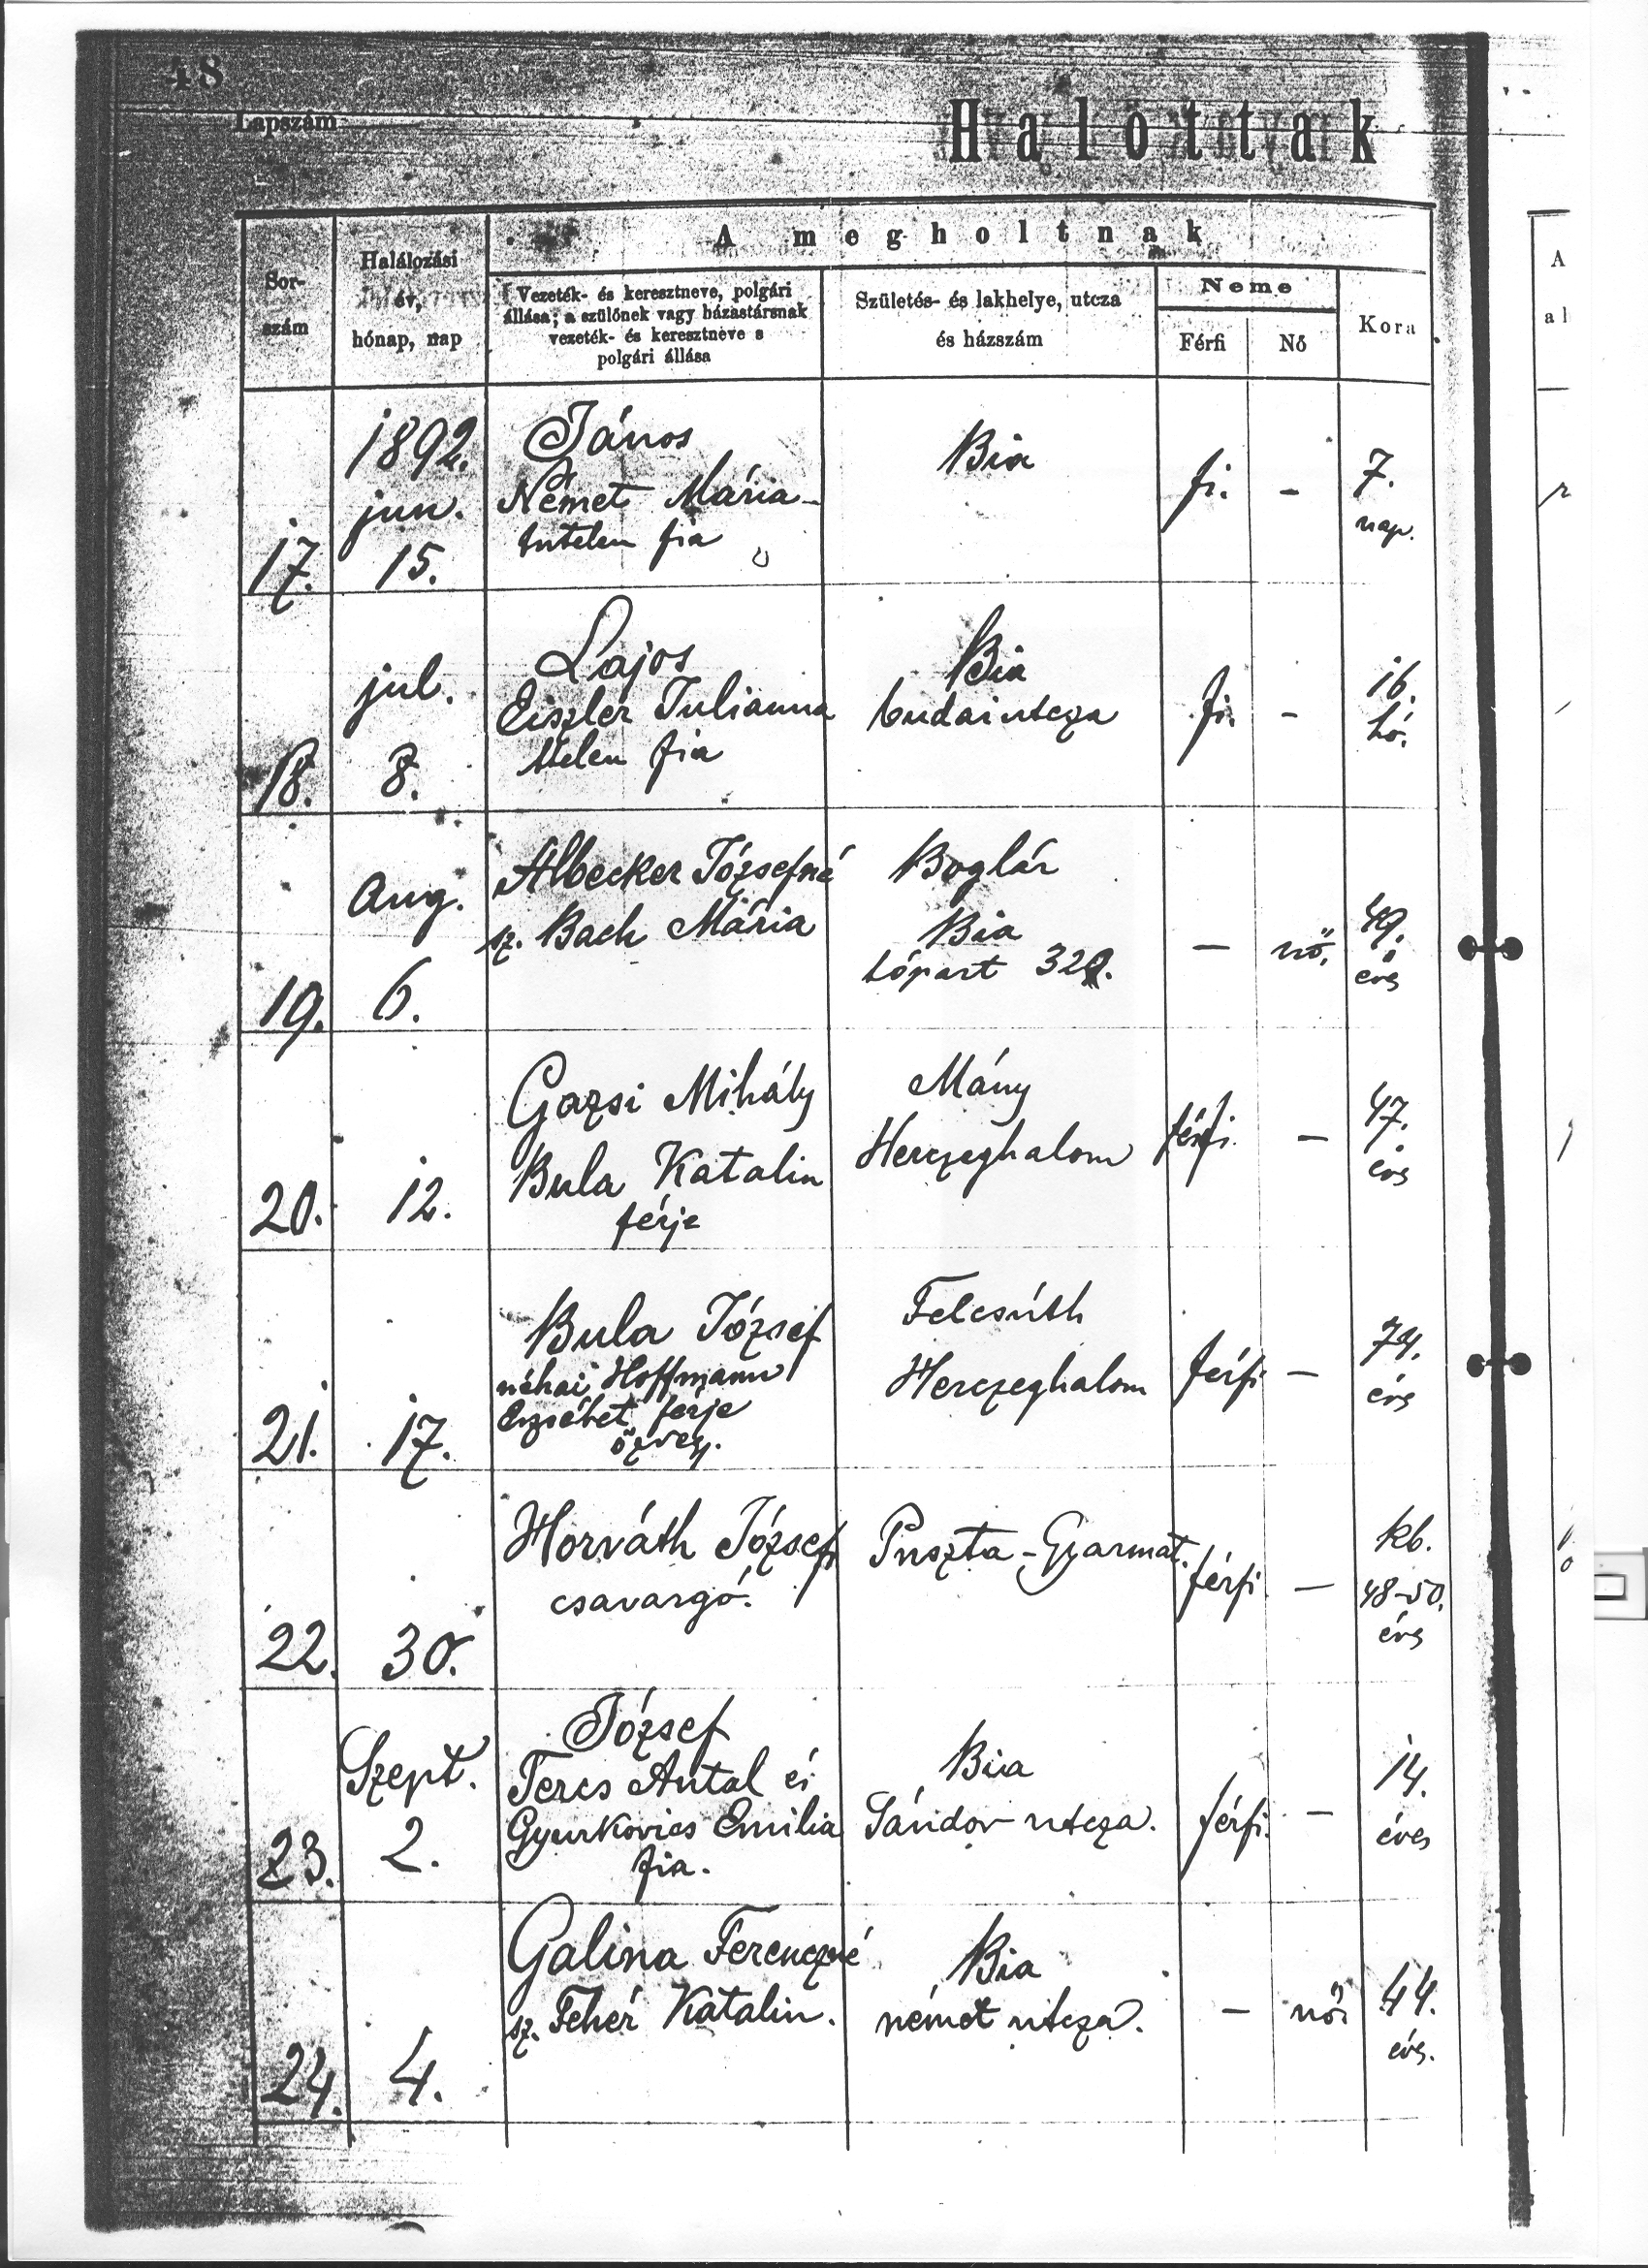 48
Lapszám
Halottak
A megholtnak
Sor-
szám
Halálozási
év,
hónap, nap
Vezeték- és keresztneve, polgári
állása; a szülőnek vagy házastársnak
vezeték- és keresztneve s
polgári állása
Születés- és lakhelye, utcza
és házszám
Neme
Férfi
Nő
Kora
A
17.
1892.
jun.
15.
János
Német Mária
fia
Bia
fi.
-
7.
nap.
18.
jul.
8.
Lajos
Eiszler Julianna
ttelen fia
Bia
budai utcza
fi.
-
16.
hó.
19.
Aug.
6.
Albecker Józsefné
sz. Bach Mária
Boglár
Bia
tópart
-
nő.
49.
éves
20.
12.
Gazsi Mihály
Bula Katalin
férje
Mány
Herczeghalom
férfi.
-
47.
éves
21.
17.
Bula József
néhai Hoffmann
Erzsébet férje
özvegy.
Felcsúth
Herczeghalom
férfi
-
74.
éves
22.
30.
Horváth József
csavargó.
Puszta-Gyarmat.
férfi.
-
kb.
48-50.
éves
23.
Szept.
2.
József
Teres Antal és
Gyurkovics Emilia
fia.
Bia
Sándor utcza.
férfi.
-
14.
éves
24.
4.
Galina Ferenczné
sz. Fehér Katalin.
Bia
német utcza.
-
nő.
44.
éves.